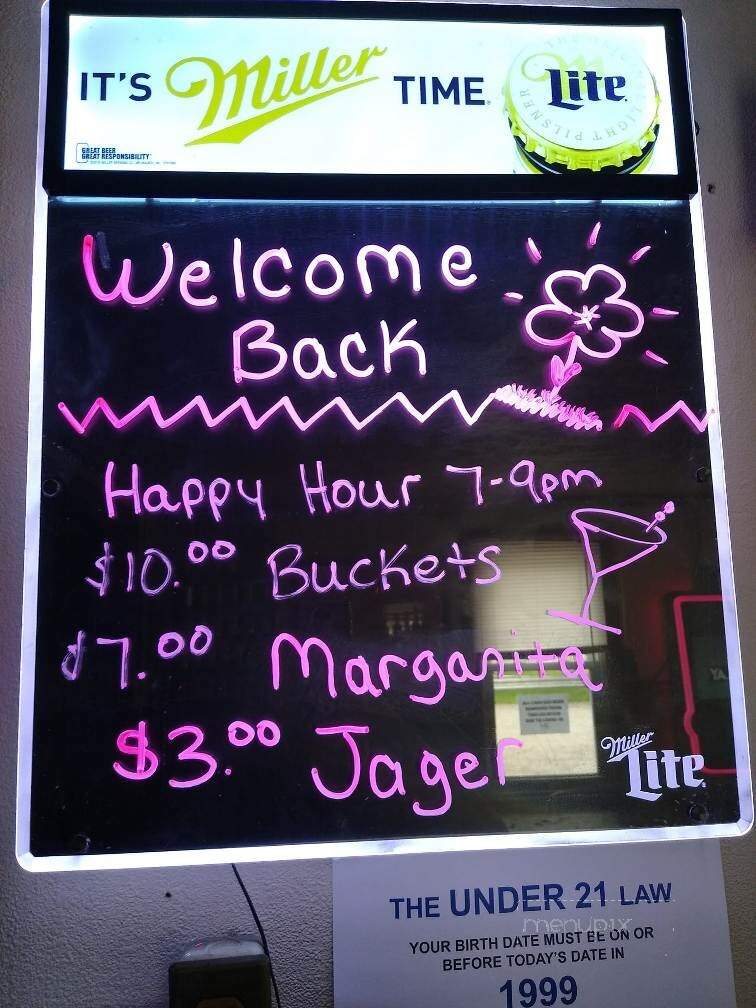 IT'S Miller TIME.
Lite
PILSNER
GREAT BEER
GREAT RESPONSIBILITY
Welcome
Back
Happy Hour 7-9pm
$10.00 Buckets
$7.00 Margarita
$3.00 Jager
Miller
Lite
THE UNDER 21 LAW
menupix
YOUR BIRTH DATE MUST BE ON OR
BEFORE TODAY'S DATE IN
1999